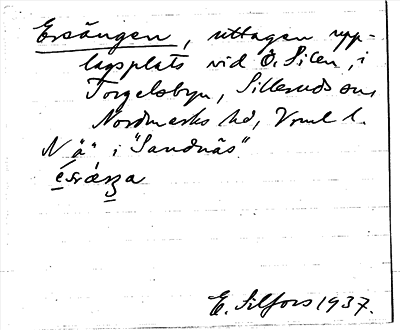 Ersängen, uttagen upp-
lagsplats vid Ö. Silen, i
Torgelsbyn, Silleruds sn,
Nordmarks hd, Vrml l.
N ä" i "Sandnäs".
E. Silfors 1937.